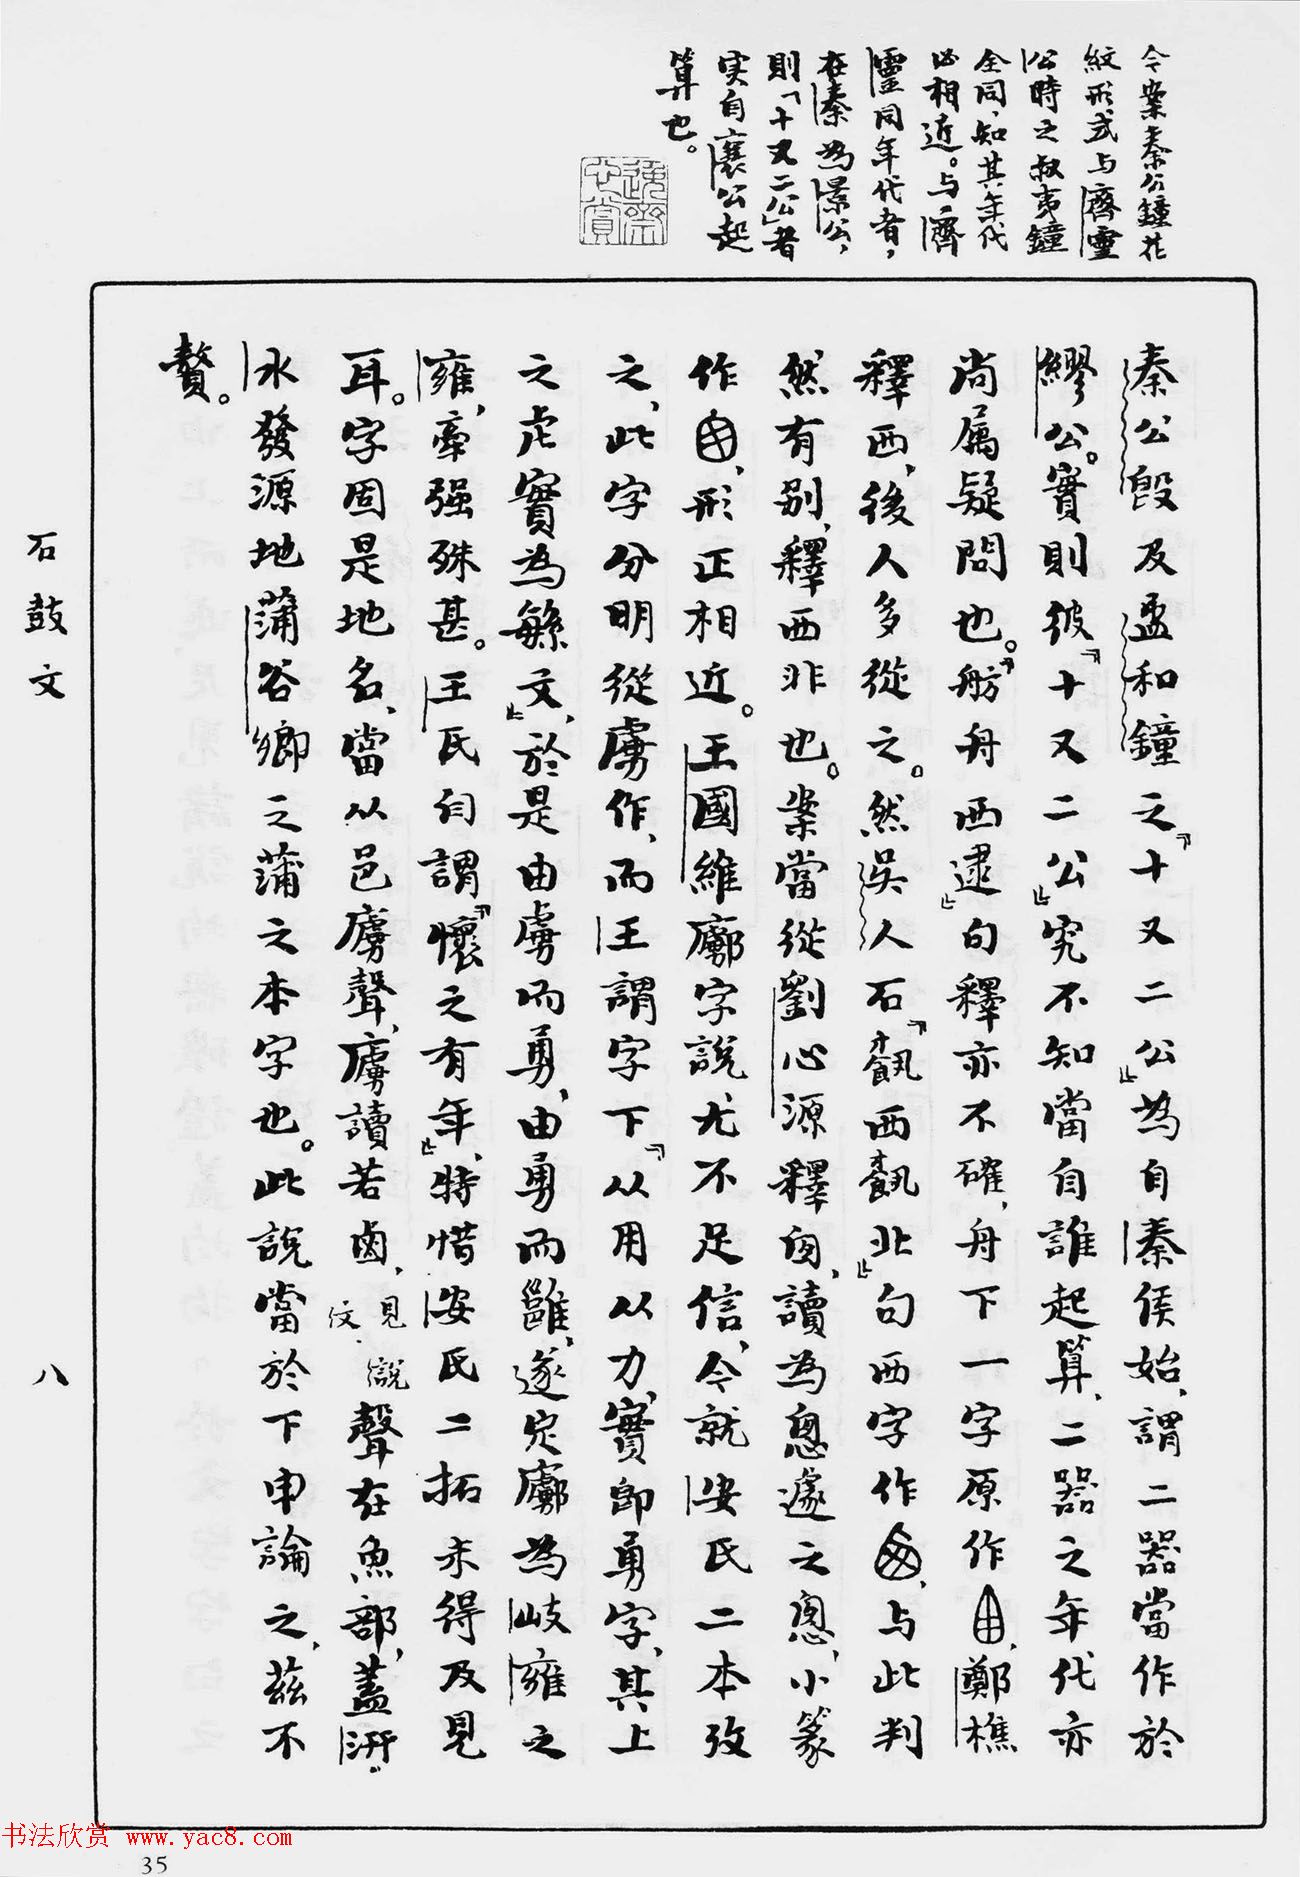 今案秦公鐘花
紋形式与齊靈
公時之叔夷鐘
全同,知其年代
必相近。与齊
靈同年代者,
在秦為景公,
則「十又二公」者
实自襄公起
算也。
秦公𣪘及盄和鐘之「十又二公」為自秦侯始,謂二器當作於
繆公。實則彼「十又二公」究不知當自誰起算,二器之年代亦
尚属疑問也。「舫舟西逮」句釋亦不確,舟下一字原作,鄭樵
釋西,後人多從之。然吴人石「西北」句西字作,与此判
然有别,釋西非也。案當從劉心源釋囱,讀為悤遽之悤,小篆
作,形正相近。王國維鄜字說尤不足信,今就安氏二本攷
之,此字分明從虜作,而王謂字下「从用从力,實即勇字,其上
之虍實為繇文」,於是由虜而勇,由勇而雝,遂定鄜為岐雍之
雍,牽强殊甚。王氏自謂「懷之有年,特惜安氏二拓未得及見
耳。字固是地名,當从邑虜聲,虜讀若鹵,見說文.聲在魚部,蓋汧
水發源地蒲谷鄉之蒲之本字也。此說當於下申論之,茲不
贅。
石鼓文
八
书法欣赏 www.yac8.com
35